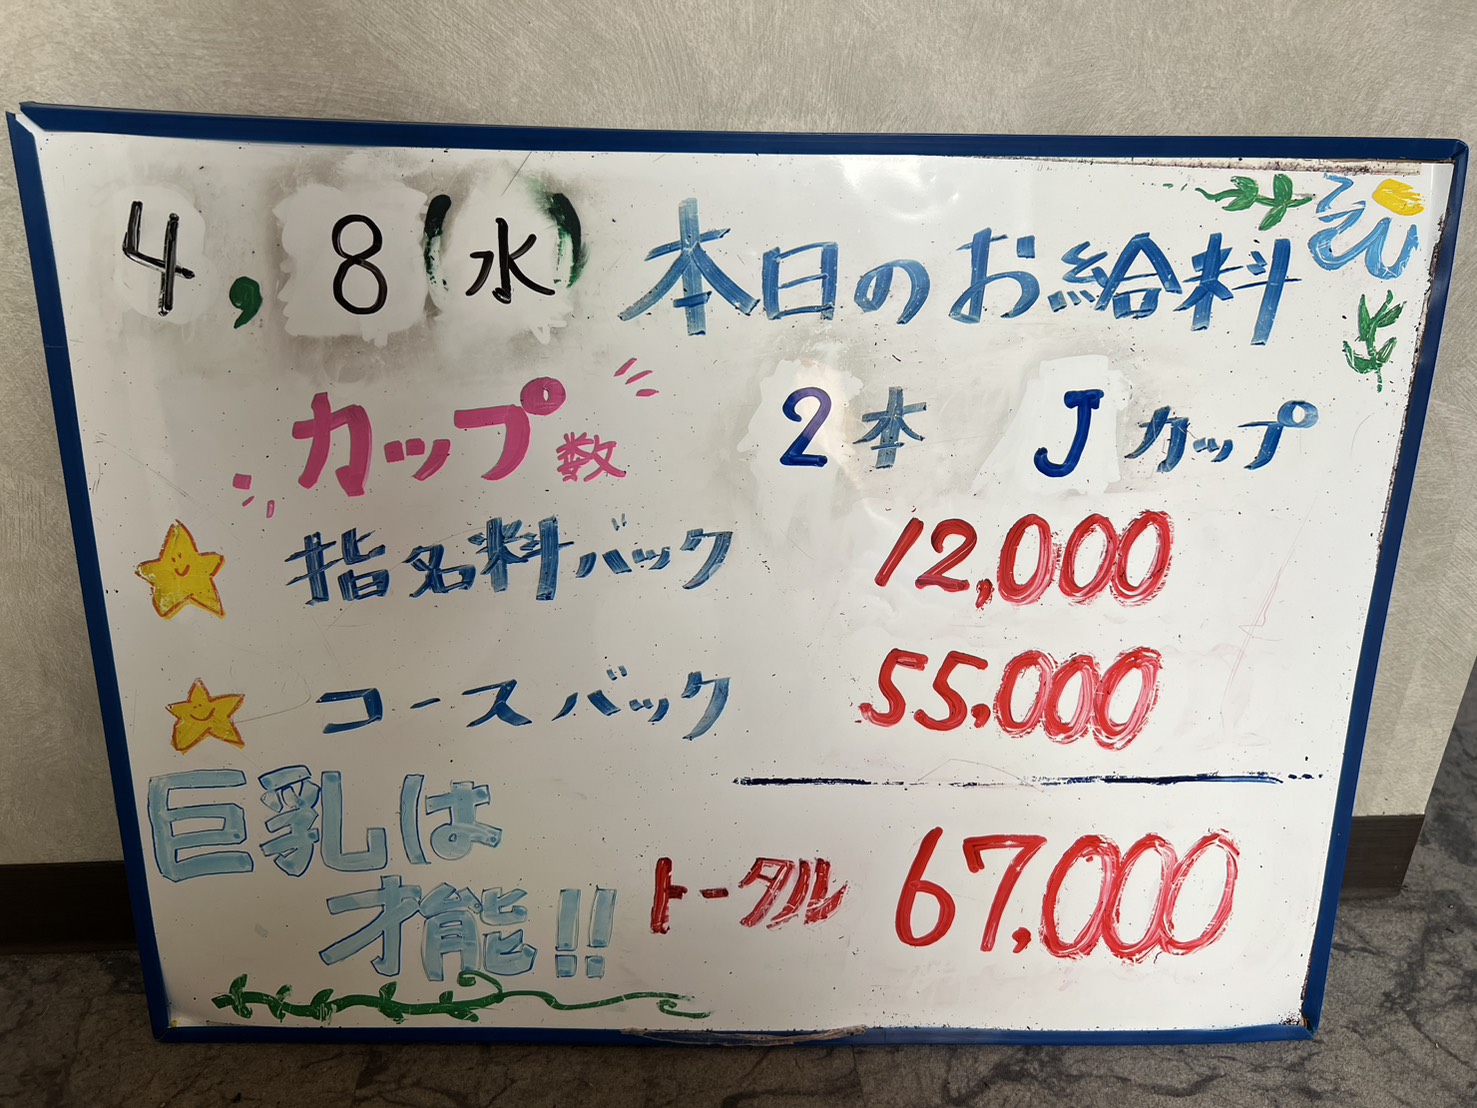 4,8(水) 本日のお給料
カップ数 2本 Jカップ
指名料バック 12,000
コースバック 55,000
巨乳は
才能!!
トータル 67,000